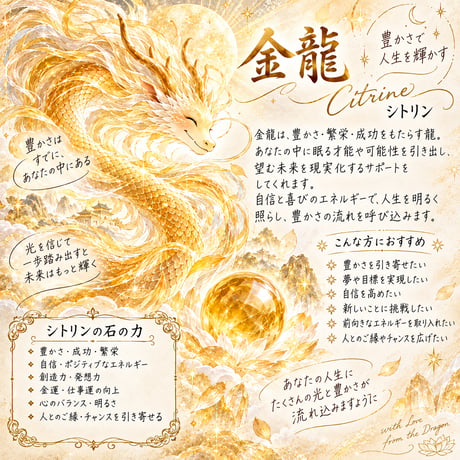 金龍
豊かさで
人生を輝かす
Citrine
シトリン
金龍は、豊かさ・繁栄・成功をもたらす龍。
あなたの中に眠る才能や可能性を引き出し、
望む未来を現実化するサポートを
してくれます。
自信と喜びのエネルギーで、人生を明るく
照らし、豊かさの流れを呼び込みます。
豊かさは
すでに、
あなたの中にある
光を信じて
一歩踏み出すと
未来はもっと輝く
こんな方におすすめ
豊かさを引き寄せたい
夢や目標を実現したい
自信を高めたい
新しいことに挑戦したい
前向きなエネルギーを取り入れたい
人とのご縁やチャンスを広げたい
シトリンの石の力
豊かさ・成功・繁栄
自信・ポジティブなエネルギー
創造力・発想力
金運・仕事運の向上
心のバランス・明るさ
人とのご縁・チャンスを引き寄せる
あなたの人生に
たくさんの光と豊かさが
流れ込みますように
with Love
from the Dragon